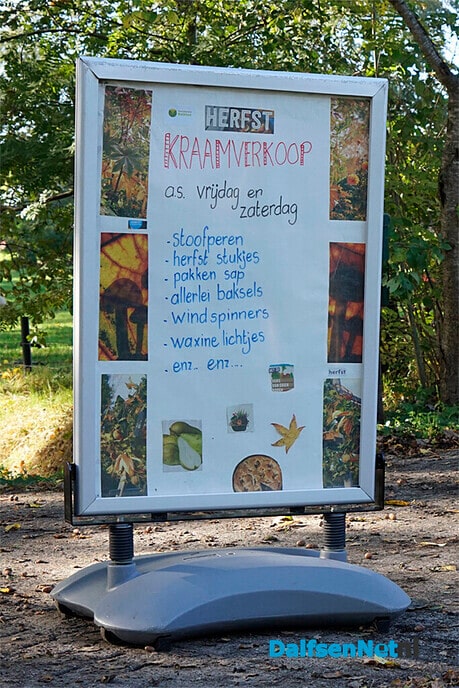 HERFST
KRAAMVERKOOP
a.s. vrijdag en
zaterdag
- Stoofperen
- herfst stukjes
- pakken sap
- allerlei baksels
- Windspinners
- waxine lichtjes
- enz.. enz....
herfst
DalfsenNet.nl